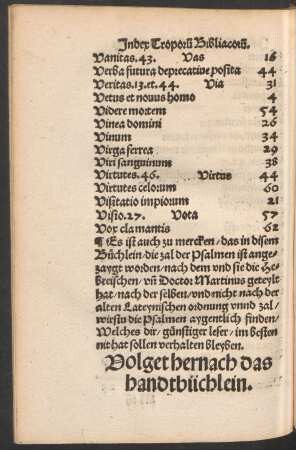 Index Troporū Bibliacorū.
Vanitas.43. Vas 16
Verba futura deprecative posita 44
Veritas.13.et.44. Via 31
Vetus et novus homo 4
Videre mortem 54
Vinea domini 26
Vinum 34
Virga ferrea 29
Viri sanguinum 38
Virtutes.46. Virtus 44
Virtutes celorum 60
Visitatio impiorum 21
Visio.27. Vota 57
Vox clamantis 62
¶ Es ist auch zu mercken/das in disem
Büchlein/die zal der Psalmen ist ange-
zaygt worden/nach dem vnd sie die He-
breischen/vñ Doctor Martinus geteylt
hat/nach der selben/vnd nicht nach der
alten Lateynischen ordnung vnnd zal/
wirstu die Psalmen aygentlich finden/
Welches dir/günstiger leser/im besten
nit hat sollen verhalten bleyben.
Volget hernach das
handtbüchlein.